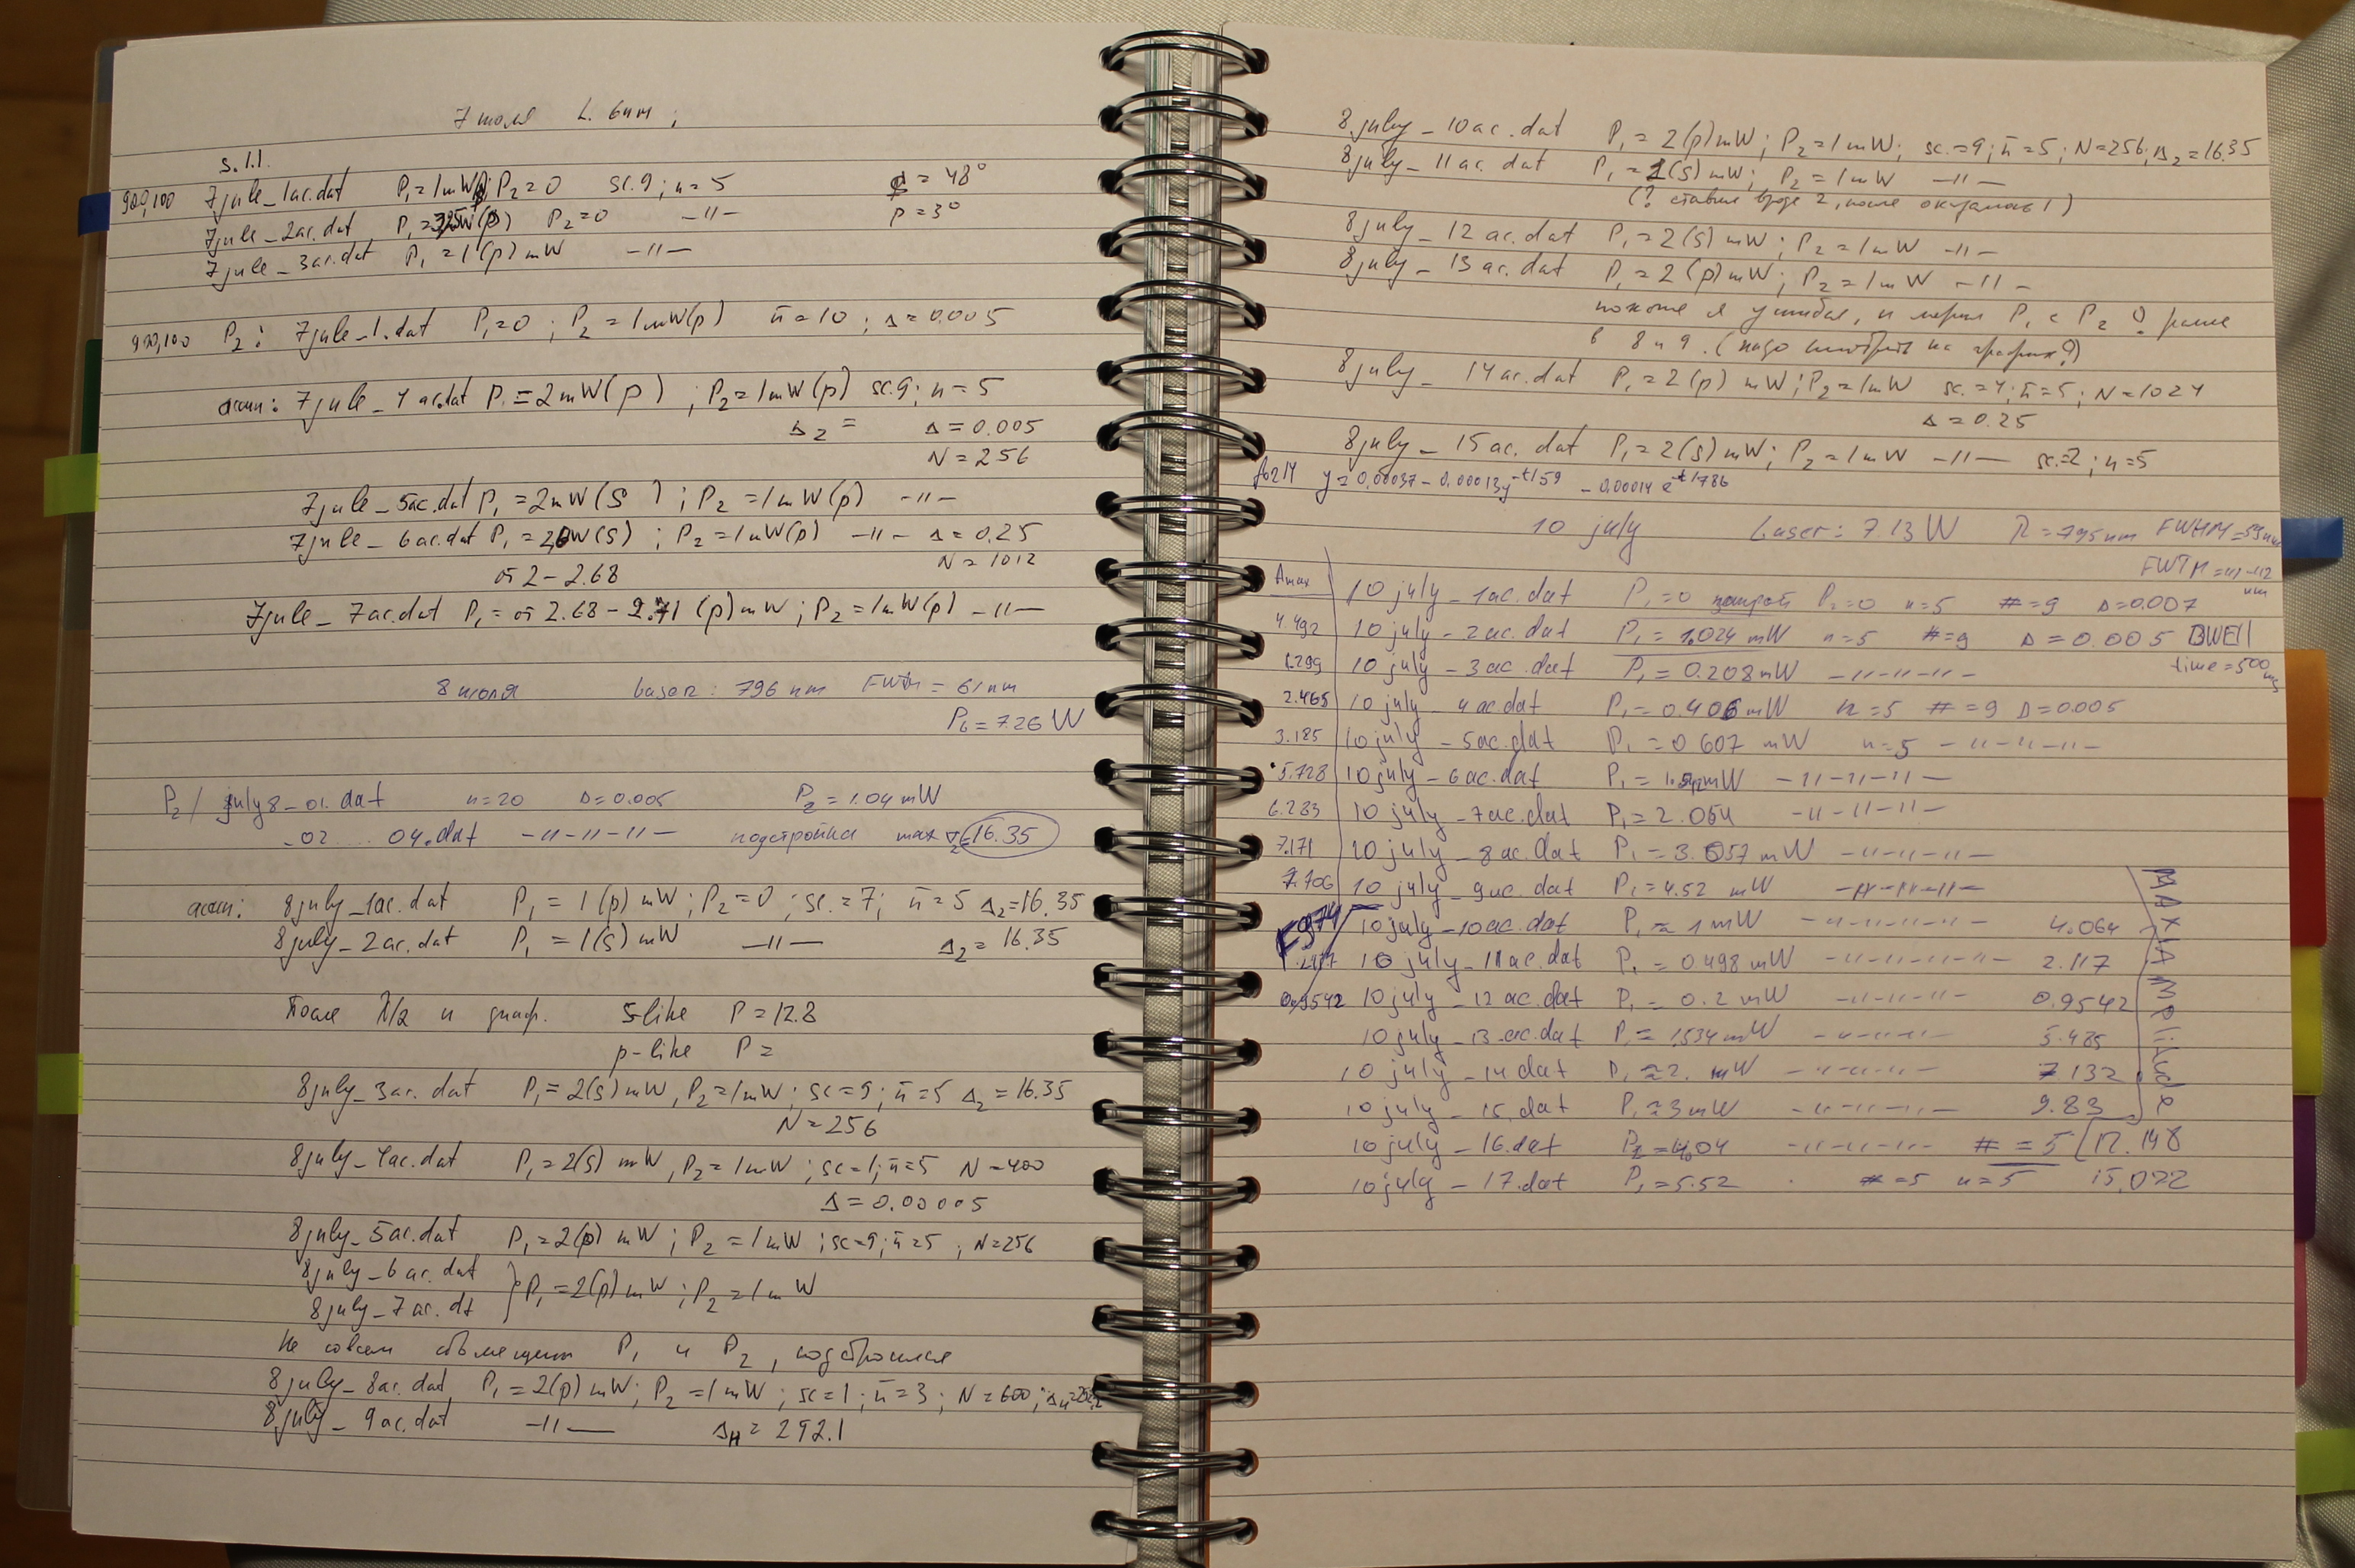 7 июля L. 6nm ;
S.1.1.
900,100 7jule_1ac.dat P₁=1mW; P₂=0 sc.9; n=5 = 48°
7jule_2ac.dat P₁= (p) P₂=0 -11- p=3°
7jule_3ac.dat P₁=1(p) mW -11-
900,100 P₂: 7jule_1.dat P₁=0; P₂=1mW(p) n̄=10; Δ=0.005
асин: 7jule_4ac.dat P₁=2mW(p); P₂=1mW(p) sc.9; n=5
Δ₂ = Δ=0.005
N=256
7jule_5ac.dat P₁=2mW(S); P₂=1mW(p) -11-
7jule_6ac.dat P₁= (S); P₂=1mW(p) -11- Δ=0.25
N=1012
от 2-2.68
7jule_7ac.dat P₁= от 2.68-2.71 (p)mW; P₂=1mW(p) -11-
8 июля Laser: 796 nm = 61nm
P₆=7.26 W
P₂/ july8_01.dat n=20 Δ=0.005 P₂=1.04mW
_02....04.dat -11-11-11- подстройка max 16.35
асин: 8july_1ac.dat P₁=1(p) mW; P₂=0; sc.=7; n̄=5 Δ₂=16.35
8july_2ac.dat P₁=1(s) mW -11- Δ₂=16.35
После λ/2 и диаф. S-like P=12.8
p-like P=
8july_3ac.dat P₁=2(s)mW, P₂=1mW; sc=9; n̄=5 Δ₂=16.35
N=256
8july_4ac.dat P₁=2(s) mW, P₂=1mW; sc=1; n̄=5 N=400
Δ=0.00005
8july_5ac.dat P₁=2(p) mW; P₂=1mW; sc=9; n̄=5; N=256
8july_6ac.dat } P₁=2(p)mW; P₂=1mW
8july_7ac.dt
Не совсем совмещены P₁ и P₂, подстроился
8july_8ac.dat P₁=2(p) mW; P₂=1mW; sc=1; n̄=3; N=600;
8july_9ac.dat -11- Δн=292.1
8july_10ac.dat P₁=2(p)mW; P₂=1mW; sc.=9; n̄=5; N=256; Δ₂=16.35
8july_11ac.dat P₁=1(S) mW; P₂=1mW -11-
(? ставил вроде 2, после оказалось 1)
8july_12ac.dat P₁=2(S) mW; P₂=1mW -11-
8july_13ac.dat P₁=2(p)mW; P₂=1mW -11-
похоже я ошибся, и мерил P₁ с P₂ ? раньше
в 8 и 9. (надо смотреть на графики?)
8july_14ac.dat P₁=2(p) mW; P₂=1mW sc.=4; n̄=5; N=1024
Δ=0.25
8july_15ac.dat P₁=2(s)mW; P₂=1mW -11- sc.=2; n=5
y=0.00037-0.00013y^-t/59 -0.00014e^-t/786
10 july Laser: 7.13 W λ=795nm FWHM=59nm
FWTM=
nm
Amax 10 july_1ac.dat P₁=0 P₂=0 n=5 #=9 Δ=0.007
4.492 10 july_2ac.dat P₁=1.024 mW n=5 #=9 Δ=0.005 DWEll
time=500 ms
1.299 10 july_3ac.dat P₁=0.208mW -11-11-11-
2.465 10 july_4ac.dat P₁=0.406mW n=5 #=9 Δ=0.005
3.185 10 july_5ac.dat P₁=0.607 mW n=5 -11-11-11-
5.728 10 july_6ac.dat P₁= mW -11-11-11-
6.283 10 july_7ac.dat P₁=2.054 -11-11-11-
7.171 10 july_8ac.dat P₁=3.057mW -11-11-11-
7.706 10 july_9ac.dat P₁=4.52 mW -11-11-11-
10 july_10ac.dat P₁≈1mW -11-11-11- 4.064
10 july_11ac.dat P₁=0.498mW -11-11-11-11- 2.117
0.9542 10 july_12ac.dat P₁=0.2mW -11-11-11- 0.9542
10 july_13ac.dat P₁=1.534mW -11-11-11- 5.485
10 july_14.dat P₁≈2. mW -11-11-11- 7.132
10 july_15.dat P₁≈3mW -11-11-11- 9.83
10 july_16.dat P₂=4.04 -11-11-11- #=5 12.148
10 july_17.dat P₁=5.52 #=5 n=5 15.022
MAX AMPlitude